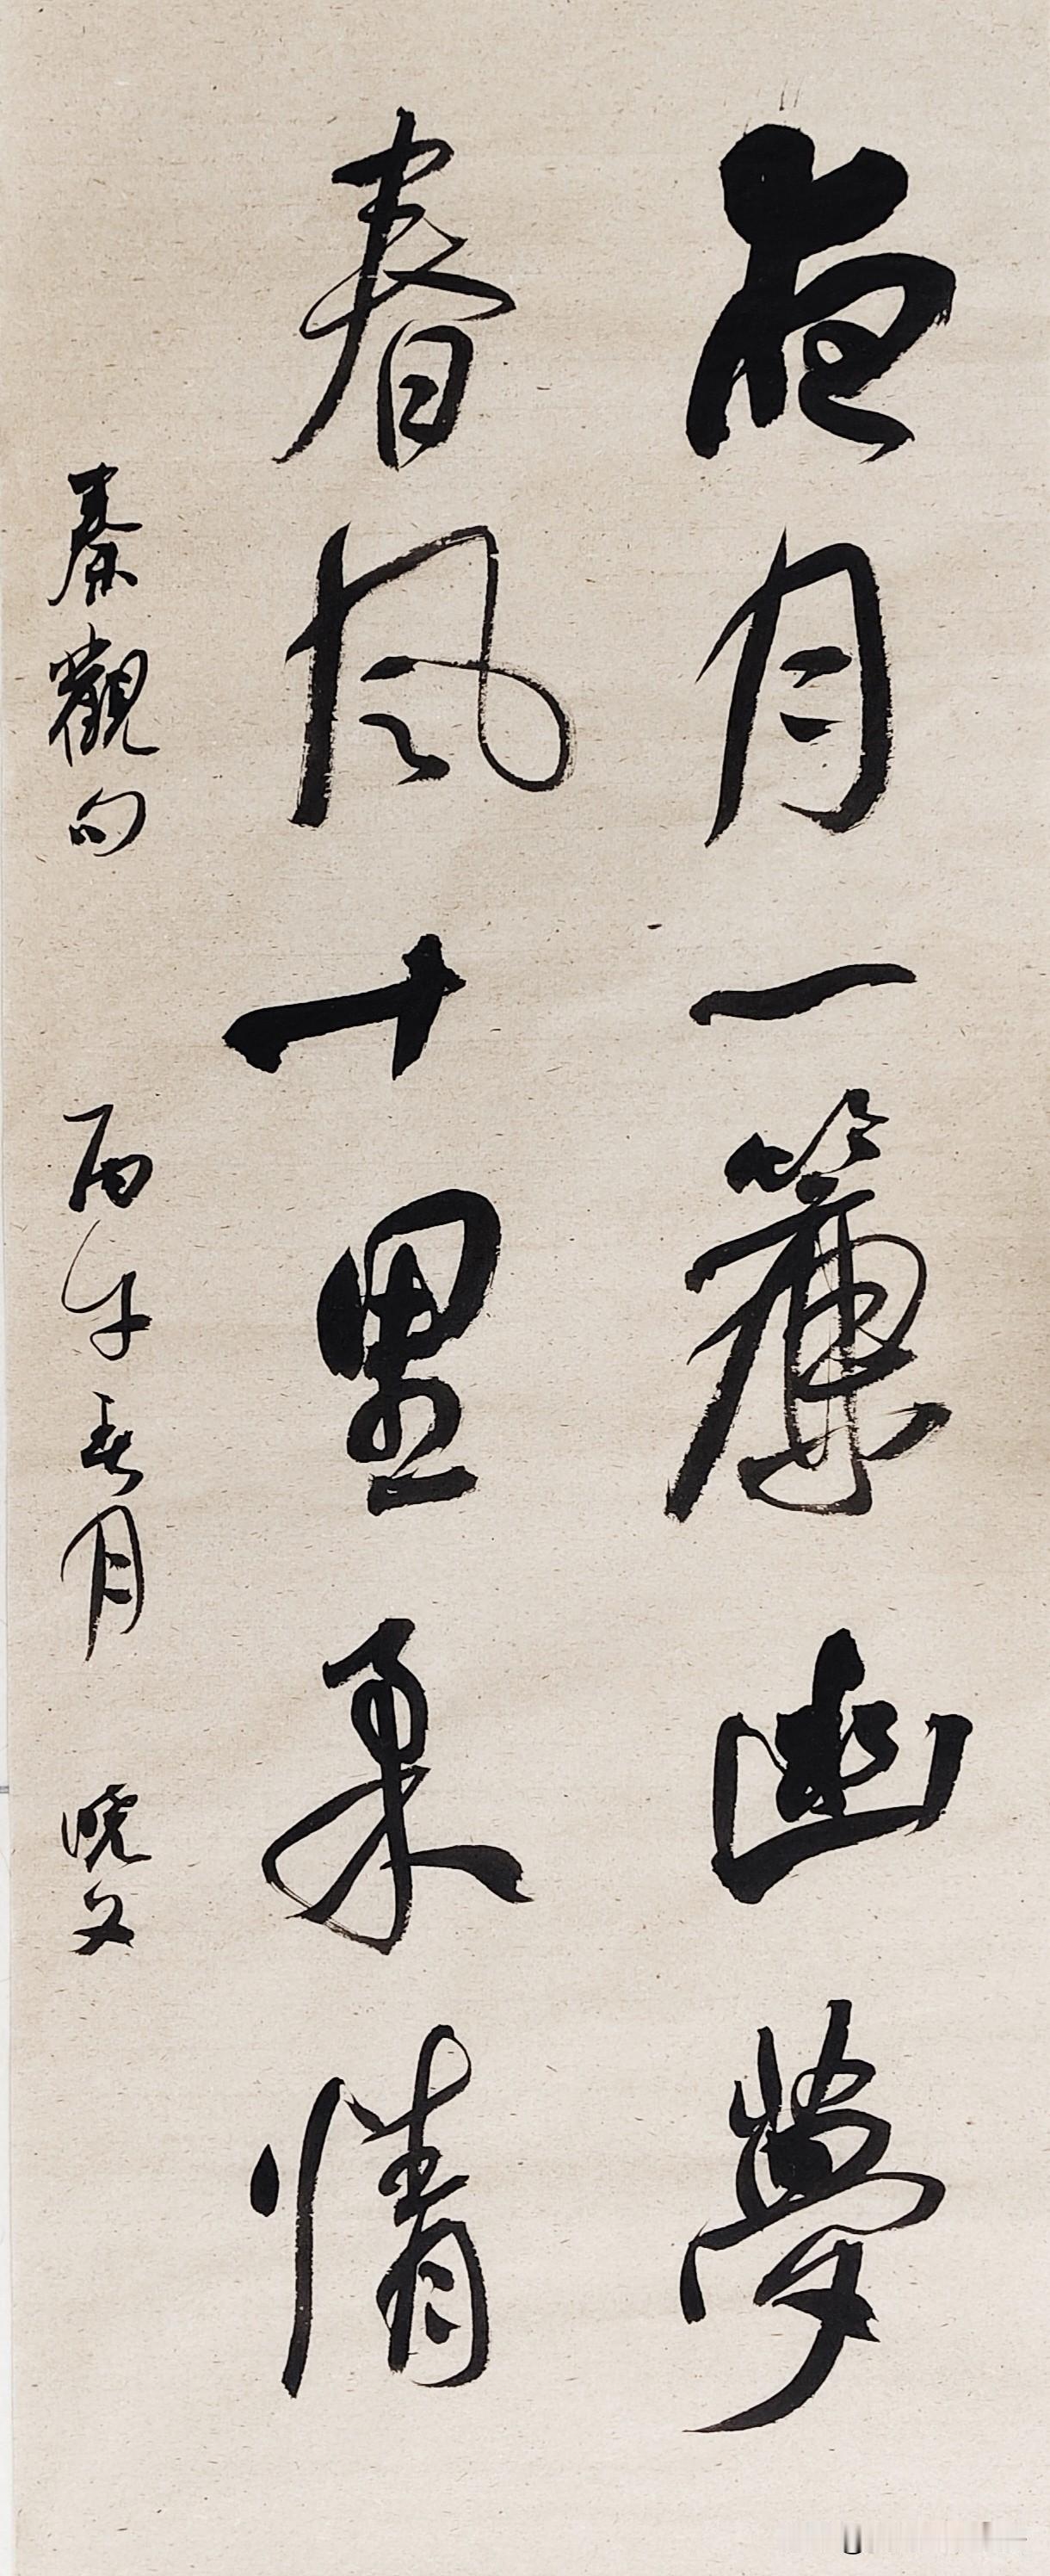 夜月一簾幽夢
春風十里柔情
秦觀句 丙午春月 曉文